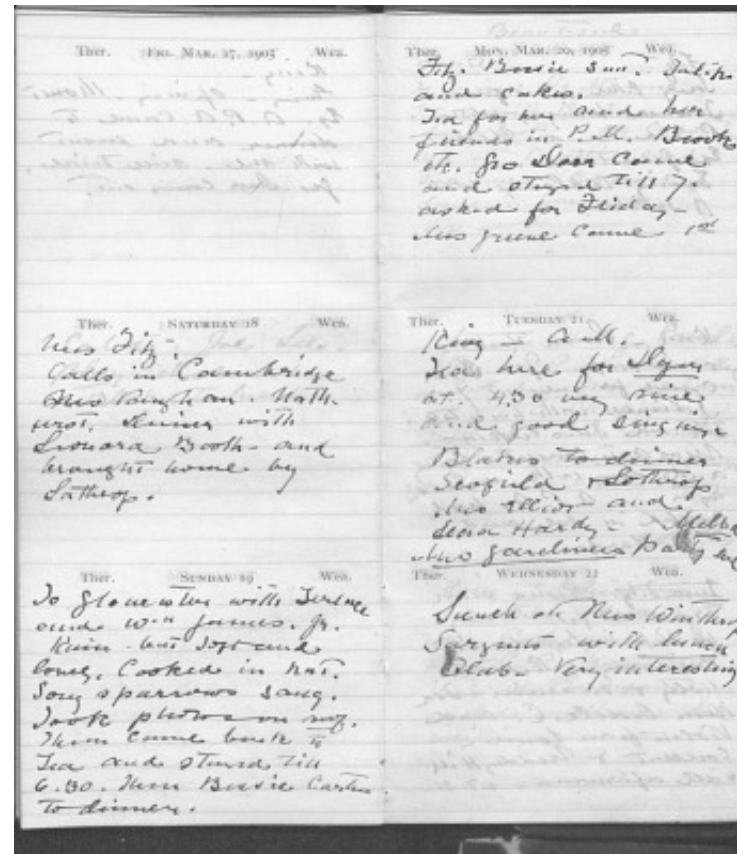 Ther. FRI. MAR. 17, 1905 Wea.
Ther. SATURDAY 18 Wea.
Mrs Fitz.
Calls in Cambridge
Mrs Vaughan Nath.
wrot. Dinner with
Leonard Booth - and
brought home by
Lathrop.
Ther. SUNDAY 19 Wea.
To Gloucester with Terence
and Wm James. Jr.
Rain but soft and
lovely. Cooked in hut.
Song sparrows sang.
Took photos on
Then came back to
Tea and stayed till
6.30. Then Bessie Carter
to dinner.
Ther. MON. MAR. 20, 1905 Wea.
Fitz. Bessie
and cakes.
Tea for her and her
friends in P.M. Brooks
etc. Geo Dorr Came
and stayed till 7.
asked for Friday -
Mrs Greene Came 1st
Ther. TUESDAY 21 Wea.
King - A.M.
Tea here for
at 4.30 very nice
and good singing
to dinner
& Lothrop
Mrs Elliot and
Hardy - Melba
Mrs Gardiners Party
Ther. WEDNESDAY 22 Wea.
Lunch at Mrs Winthrop
Sargents with lunch
Club. Very interesting